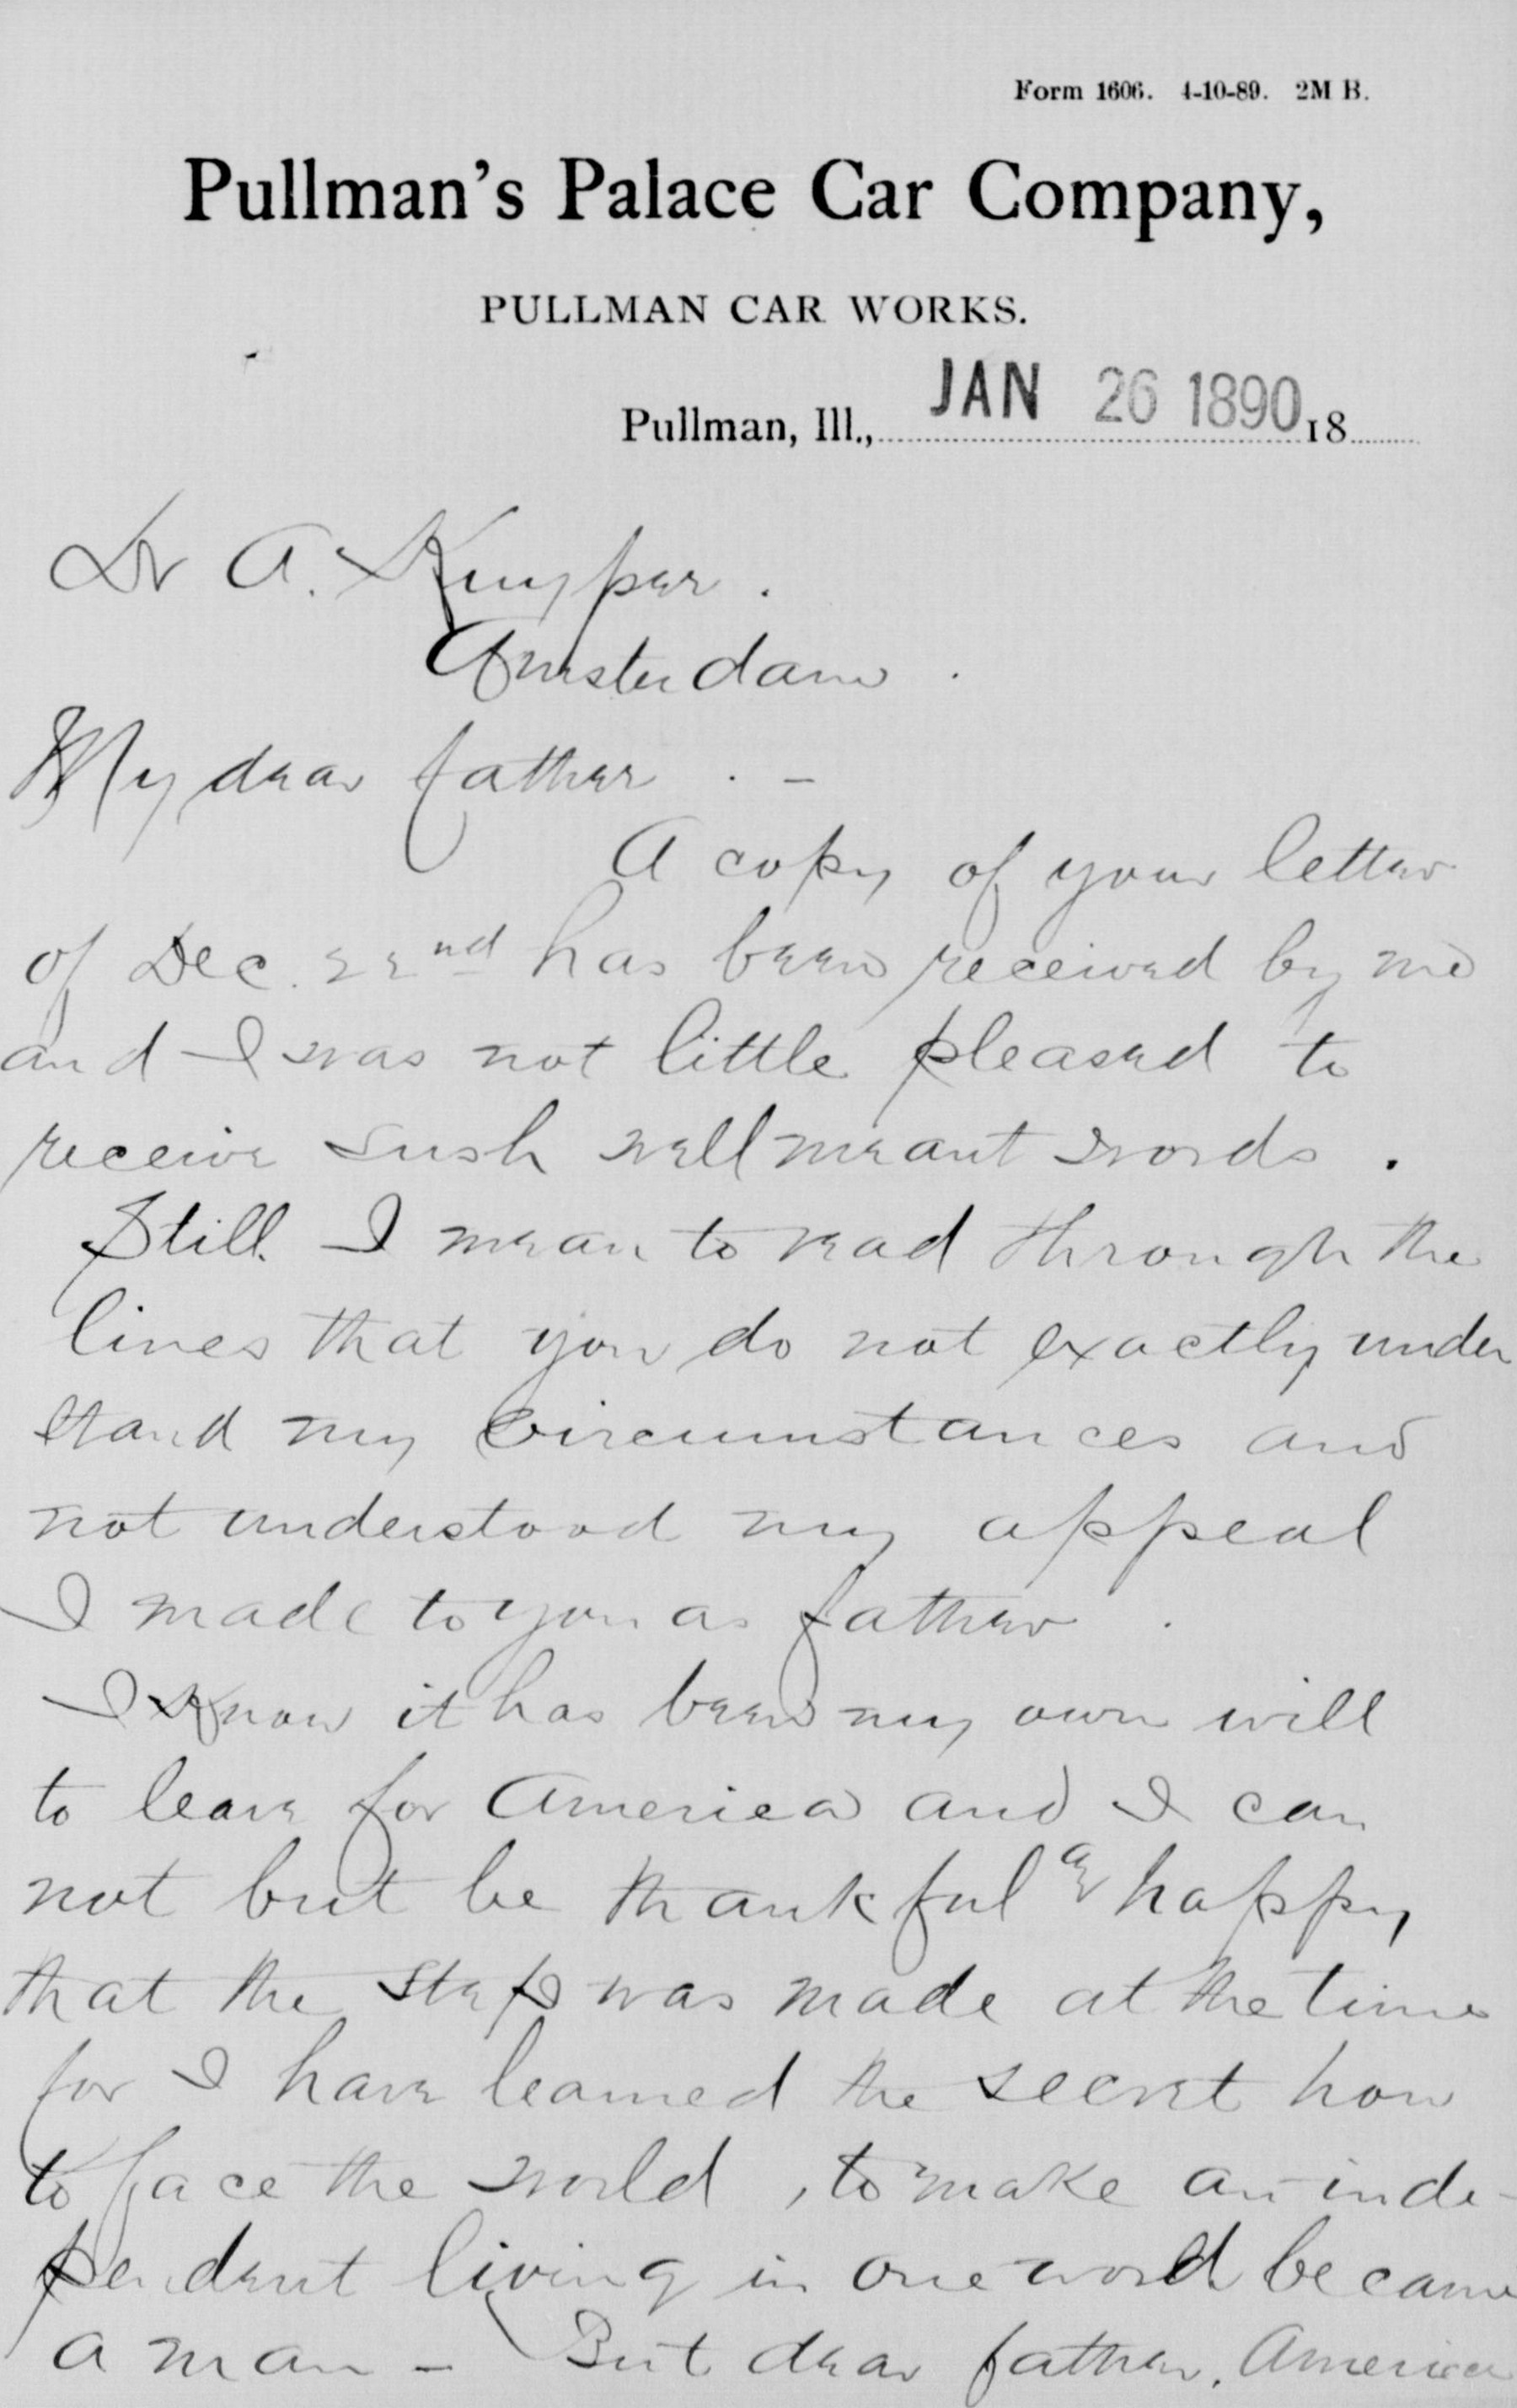 Form 1606. 4-10-89. 2M B.
Pullman's Palace Car Company,
PULLMAN CAR WORKS.
Pullman, Ill., JAN 26 1890 18
Dr A. Kuyper.
Amsterdam.
My dear father. -
A copy of your letter
of Dec. 22nd has been received by me
and I was not little pleased to
receive sush well meant words.
Still I mean to read through the
lines that you do not exactly under
stand my circumstances and
not understood my appeal
I made to you as father.
I know it has been my own will
to leave for America and I can
not but be thankful & happy
that the step was made at the time
for I have learned the secret how
to face the world, to make an inde-
pendent living in one word became
a man - But dear father, America